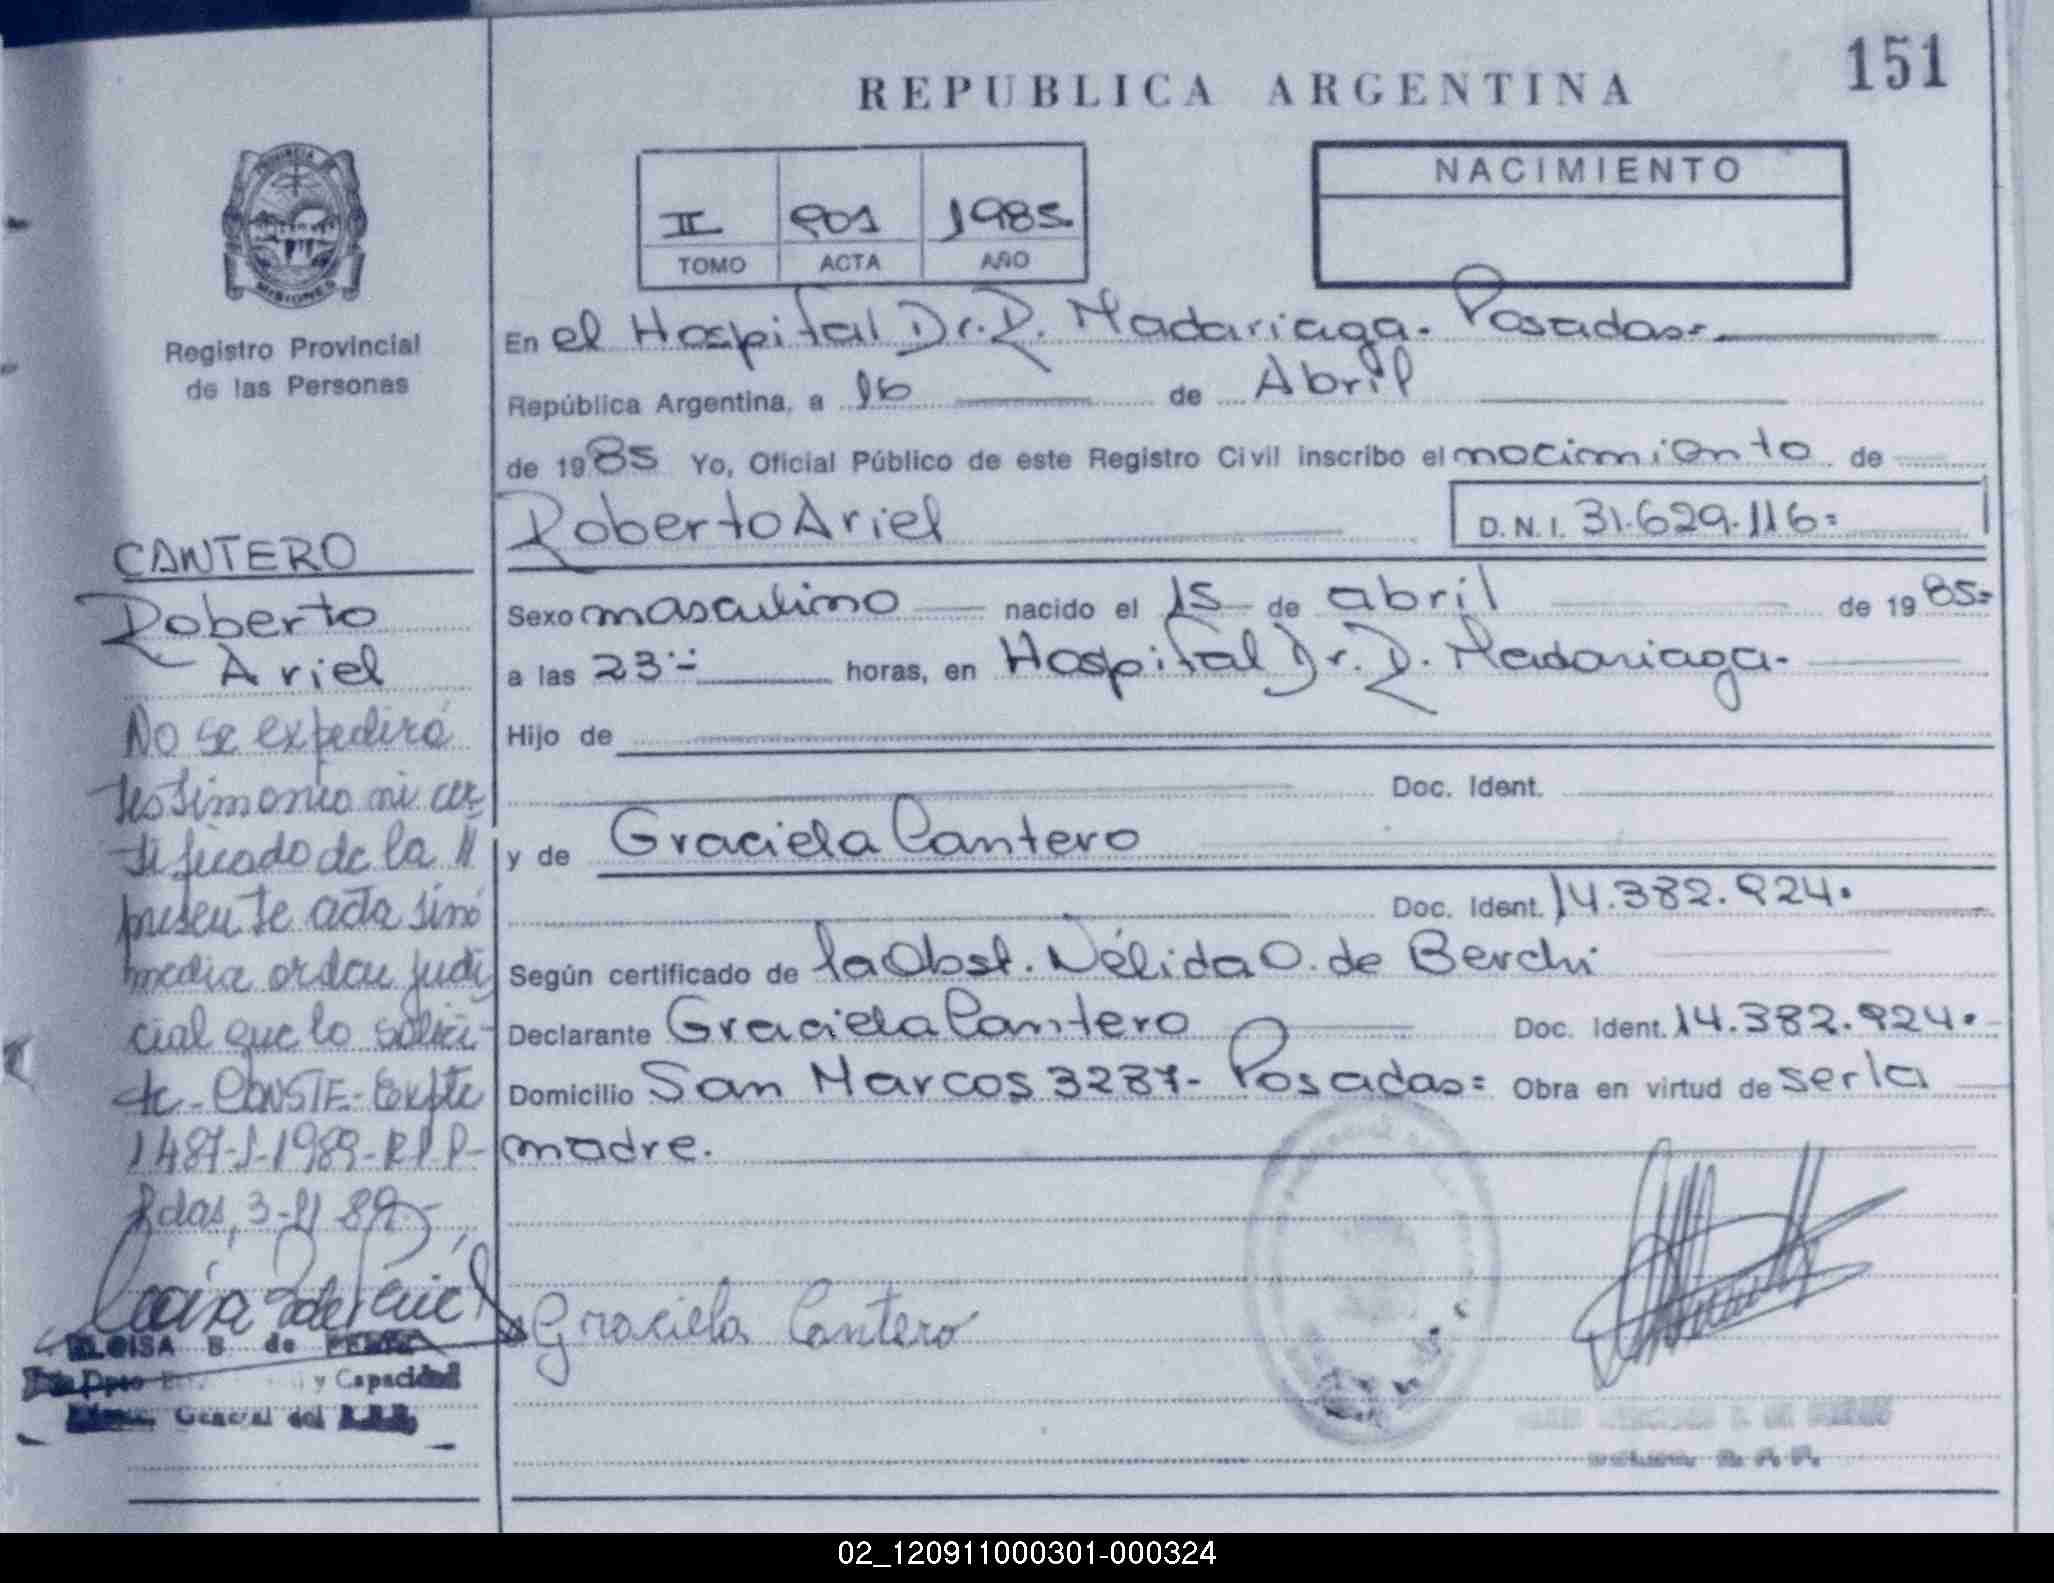 151
REPUBLICA ARGENTINA
PROVINCIA DE
MISIONES
Registro Provincial
de las Personas
II 901 1985
TOMO ACTA AÑO
NACIMIENTO
En el Hospital Dr. R. Madariaga. Posadas=
República Argentina, a 16 de Abril
de 1985 Yo, Oficial Público de este Registro Civil inscribo el nacimiento de
Roberto Ariel D.N.I. 31.629.116=
Sexo masculino nacido el 15 de abril de 1985=
a las 23 horas, en Hospital Dr. R. Madariaga.
Hijo de
Doc. Ident.
y de Graciela Cantero
Doc. Ident. 14.382.924.
Según certificado de la Obst. Nélida O. de Berchi
Declarante Graciela Cantero Doc. Ident. 14.382.924.
Domicilio San Marcos 3287- Posadas= Obra en virtud de ser la
madre.
Graciela Cantero
CANTERO
Roberto
Ariel
No se expedirá
testimonio ni cer-
tificado de la //
presente acta sinó
media orden judi
cial que lo solici-
te-CONSTE-Expte
1487-S-1989-R.P.P-
Pdas, 3-11-89.-
ELOISA B de
Dpto y Capacidad
General del
02_120911000301-000324